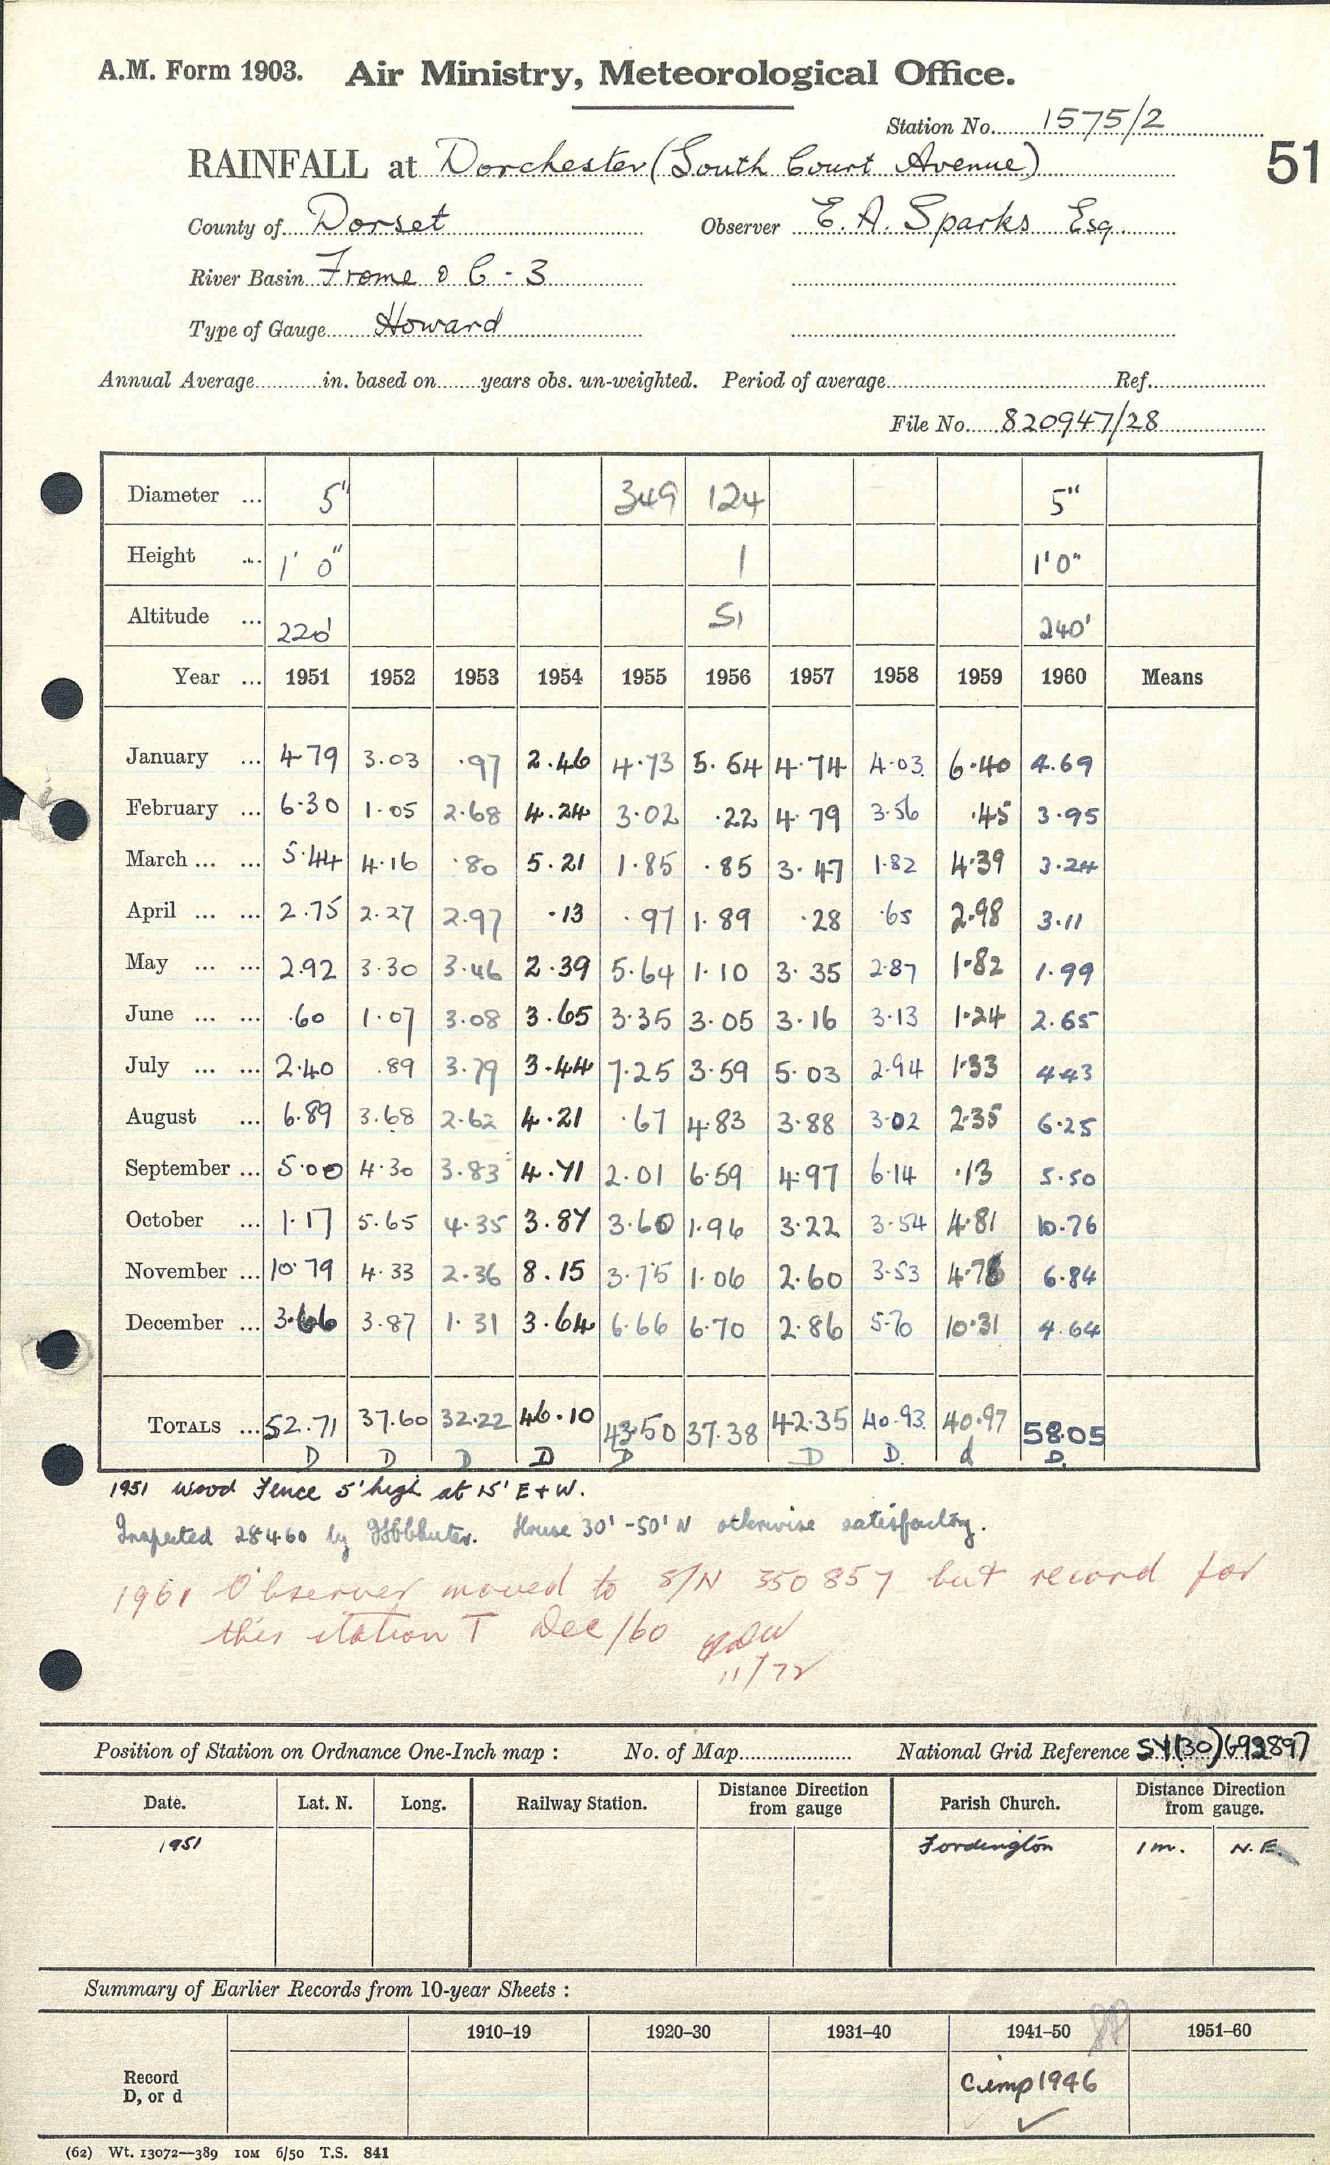 A.M. Form 1903. Air Ministry, Meteorological Office.
Station No. 1575/2
51
RAINFALL at Dorchester (South Court Avenue)
County of Dorset Observer E. A. Sparks Esq.
River Basin Frome & C - 3
Type of Gauge Howard
Annual Average in. based on years obs. un-weighted. Period of average Ref.
File No. 820947/28
Diameter ... 5" 349 124 5"
Height ... 1' 0" 1 1'0"
Altitude ... 220' 51 240'
Year ... 1951 1952 1953 1954 1955 1956 1957 1958 1959 1960 Means
January ... 4.79 3.03 .97 2.46 4.73 5.54 4.74 4.03 6.40 4.69
February ... 6.30 1.05 2.68 4.24 3.02 .22 4.79 3.56 .45 3.95
March ... ... 5.44 4.16 .80 5.21 1.85 .85 3.47 1.82 4.39 3.24
April ... ... 2.75 2.27 2.97 .13 .97 1.89 .28 .65 2.98 3.11
May ... ... 2.92 3.30 3.46 2.39 5.64 1.10 3.35 2.87 1.82 1.99
June ... ... .60 1.07 3.08 3.65 3.35 3.05 3.16 3.13 1.24 2.65
July ... ... 2.40 .89 3.79 3.44 7.25 3.59 5.03 2.94 1.33 4.43
August ... 6.89 3.68 2.62 4.21 .67 4.83 3.88 3.02 2.35 6.25
September ... 5.00 4.30 3.83 4.71 2.01 6.59 4.97 6.14 .13 5.50
October ... 1.17 5.65 4.35 3.87 3.60 1.96 3.22 3.54 4.81 10.76
November ... 10.79 4.33 2.36 8.15 3.75 1.06 2.60 3.53 4.76 6.84
December ... 3.66 3.87 1.31 3.64 6.66 6.70 2.86 5.70 10.31 4.64
TOTALS ... 52.71 37.60 32.22 46.10 43.50 37.38 42.35 40.93 40.97 58.05
D D D D D D D. d D.
1951 wood Fence 5' high at 15' E + W.
Inspected 28.4.60 by House 30'-50' N otherwise satisfactory.
1961 Observer moved to S/N 350857 but record for
this station T Dec/60
11/72
Position of Station on Ordnance One-Inch map : No. of Map National Grid Reference SY(30)692897
Date. Lat. N. Long. Railway Station. Distance Direction from gauge Parish Church. Distance Direction from gauge.
1951 Fordington 1 m. N.E.
Summary of Earlier Records from 10-year Sheets :
1910–19 1920–30 1931–40 1941–50 1951–60
Record D, or d 1946
(62) Wt. 13072—389 10M 6/50 T.S. 841